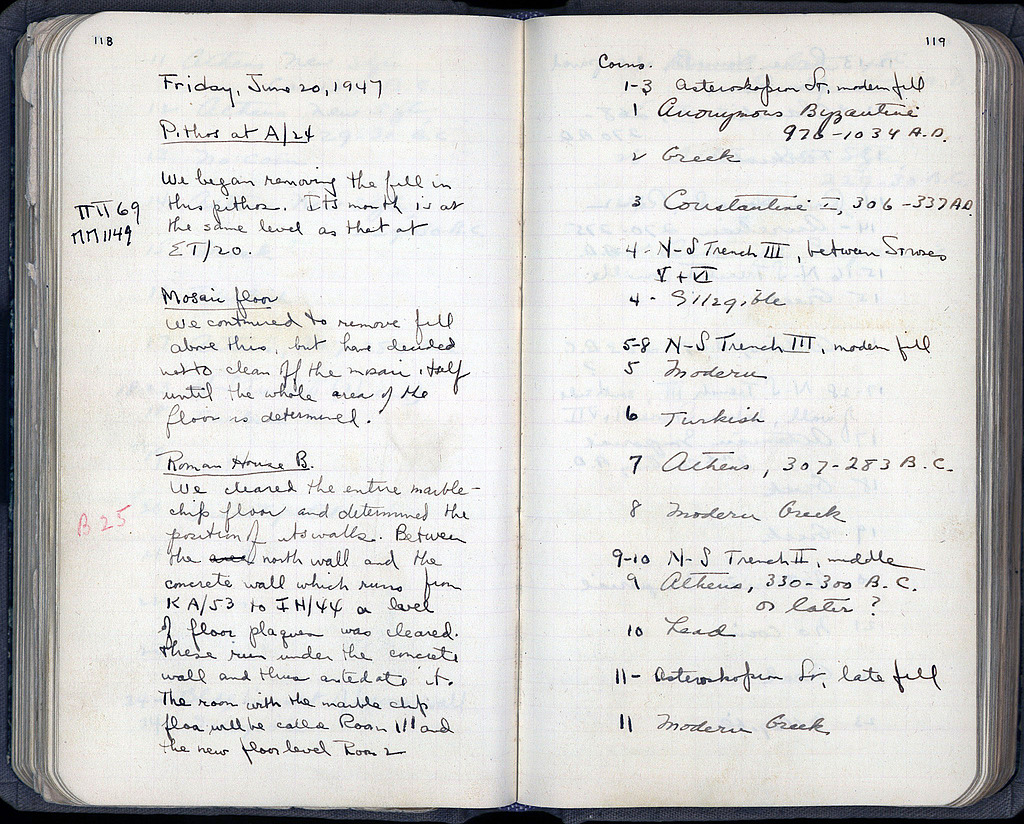 118
Friday, June 20, 1947
Pithos at A/24
We began removing the fill in
this pithos. Its mouth is at
ΠΠ 69
the same level as that at
ΜΜ 1149
ΣΤ/20.
Mosaic floor
We continued to remove fill
above this, but have decided
not to clean off the mosaic itself
until the whole area of the
floor is determined.
Roman House B.
We cleared the entire marble-
chip floor and determined the
B 25
position of its walls. Between
the north wall and the
concrete wall which runs from
ΚΑ/53 to ΙΗ/44 a level
of floor plaques was cleared.
These run under the concrete
wall and thus antedate it.
The room with the marble chip
floor will be called Room 1 and
the new floor level Room 2
119
Coins.
1-3 Asteroskopeion St., modern fill
1 Anonymous Byzantine
976-1034 A.D.
2 Greek
3 Constantine I, 306-337 A.D.
4 - N-S Trench III, between Strwes
V + VI
4 - Illegible
5-8 N-S Trench III, modern fill
5 Modern
6 Turkish
7 Athens, 307-283 B.C.
8 Modern Greek
9-10 N-S Trench II, middle
9 Athens, 330-300 B.C.
or later?
10 Lead
11- Asteroskopeion St., late fill
11 Modern Greek